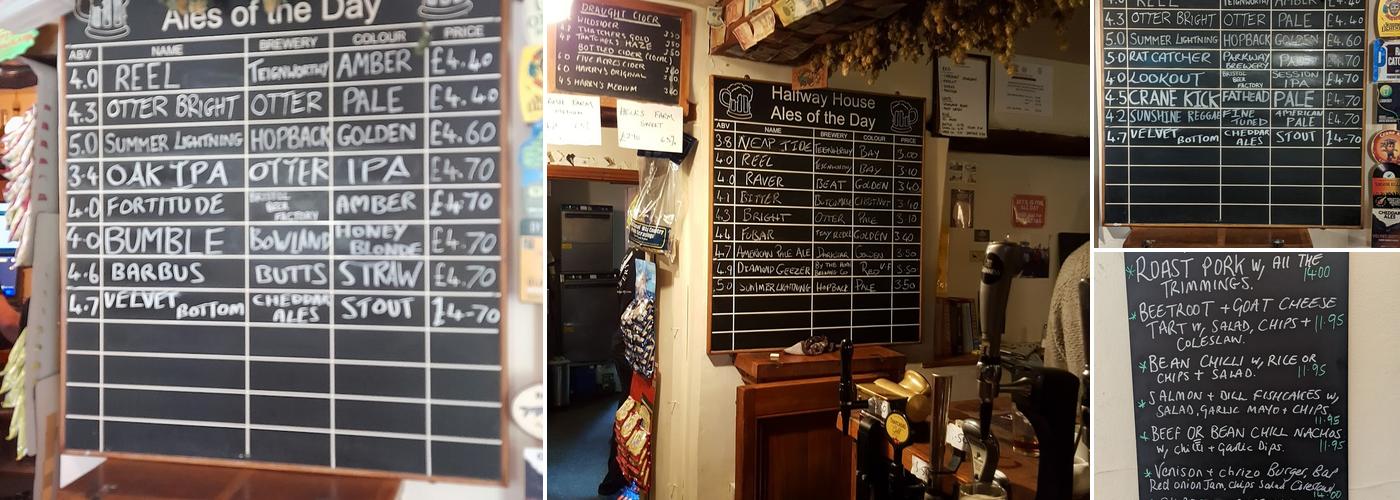 Ales of the Day
ABV NAME BREWERY COLOUR PRICE
4.0 REEL TEIGNWORTHY AMBER £4.40
4.3 OTTER BRIGHT OTTER PALE £4.40
5.0 SUMMER LIGHTNING HOPBACK GOLDEN £4.60
3.4 OAK IPA OTTER IPA £4.70
4.0 FORTITUDE BRISTOL BEER FACTORY AMBER £4.70
4.0 BUMBLE BOWLAND HONEY BLONDE £4.70
4.6 BARBUS BUTTS STRAW £4.70
4.7 VELVET BOTTOM CHEDDAR ALES STOUT £4.70
DRAUGHT CIDER
WILDSIDER
THATCHERS GOLD
4.8 THATCHERS HAZE
BOTTLED CIDER
6.0 FIVE ACRES CIDER
6.0 HARRY'S ORIGINAL
4.5 HARRY'S MEDIUM
Halfway House
Ales of the Day
ABV NAME BREWERY COLOUR PRICE
3.8 NEAP TIDE TEIGNWORTHY BAY 3.00
4.0 REEL TEIGNWORTHY BAY 3.10
4.0 RAVER BEAT GOLDEN 3.40
4.1 BITTER BUTCOMBE CHESTNUT 3.40
4.3 BRIGHT OTTER PALE 3.10
4.4 GOLDEN 3.40
4.7 AMERICAN PALE ALE DARKSTAR GOLDEN 3.50
4.9 DIAMOND GEEZER RED 3.50
5.0 SUMMER LIGHTNING HOPBACK PALE 3.50
REEL AMBER £4.40
4.3 OTTER BRIGHT OTTER PALE £4.40
5.0 SUMMER LIGHTNING HOPBACK GOLDEN £4.60
5.0 RAT CATCHER PARKWAY BREWERY £4.70
4.0 LOOKOUT BRISTOL BEER FACTORY SESSION IPA £4.70
4.5 CRANE KICK FATHEAD PALE £4.70
4.2 SUNSHINE REGGAE FINE TUNED AMERICAN PALE £4.70
4.7 VELVET BOTTOM CHEDDAR ALES STOUT £4.70
*ROAST PORK W, All THE
TRIMMINGS. 14.00
*BEETROOT + GOAT CHEESE
TART W, SALAD, CHIPS + 11.95
COLESLAW.
*BEAN CHILLI W, RICE OR
CHIPS + SALAD. 11.95
*SALMON + DILL FISHCAKES W,
SALAD, GARLIC MAYO + CHIPS
11.95
*BEEF OR BEAN CHILL NACHOS
W, Chilli + Garlic Dips. 11.95
*Venison + chrizo Burger, Bap
Red onion Jam, chips Salad